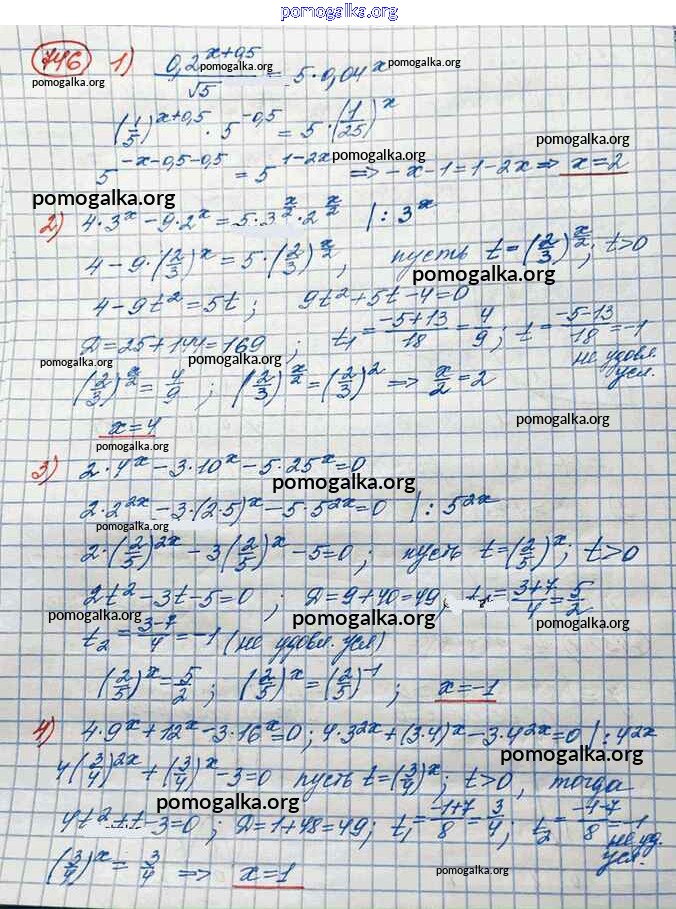 pomogalka.org
746 1) 0,2^(x+0,5)/√5 = 5·0,04^x
pomogalka.org pomogalka.org pomogalka.org
(1/5)^(x+0,5) · 5^(-0,5) = 5·(1/25)^x
pomogalka.org
5^(-x-0,5-0,5) = 5^(1-2x) => -x-1=1-2x => x=2
pomogalka.org pomogalka.org
pomogalka.org
2) 4·3^x - 9·2^x = 5·3^(x/2)·2^(x/2) |:3^x
4-9·(2/3)^x = 5·(2/3)^(x/2), пусть t=(2/3)^(x/2); t>0
pomogalka.org
4-9t²=5t; 9t²+5t-4=0
D=25+144=169; t₁=(-5+13)/18=4/9; t=(-5-13)/18=-1
pomogalka.org pomogalka.org не удовл. усл.
(2/3)^(x/2)=4/9; (2/3)^(x/2)=(2/3)^2 => x/2=2
x=4
pomogalka.org
pomogalka.org
3) 2·4^x-3·10^x-5·25^x=0
pomogalka.org
2·2^(2x)-3·(2·5)^x-5·5^(2x)=0 |:5^(2x)
pomogalka.org
2·(2/5)^(2x)-3(2/5)^x-5=0; пусть t=(2/5)^x; t>0
2t²-3t-5=0; D=9+40=49, t₁=(3+7)/4=5/2
pomogalka.org pomogalka.org pomogalka.org
t₂=(3-7)/4=-1 (не удовл. усл)
(2/5)^x=5/2; (2/5)^x=(2/5)^(-1); x=-1
4) 4·9^x+12^x-3·16^x=0; 4·3^(2x)+(3·4)^x-3·4^(2x)=0 |:4^(2x)
pomogalka.org
4(3/4)^(2x)+(3/4)^x-3=0 пусть t=(3/4)^x; t>0, тогда
pomogalka.org
4t²+t-3=0; D=1+48=49; t₁=(-1+7)/8=3/4; t₂=(-1-7)/8=-1
не уд. усл.
(3/4)^x=3/4 => x=1
pomogalka.org pomogalka.org